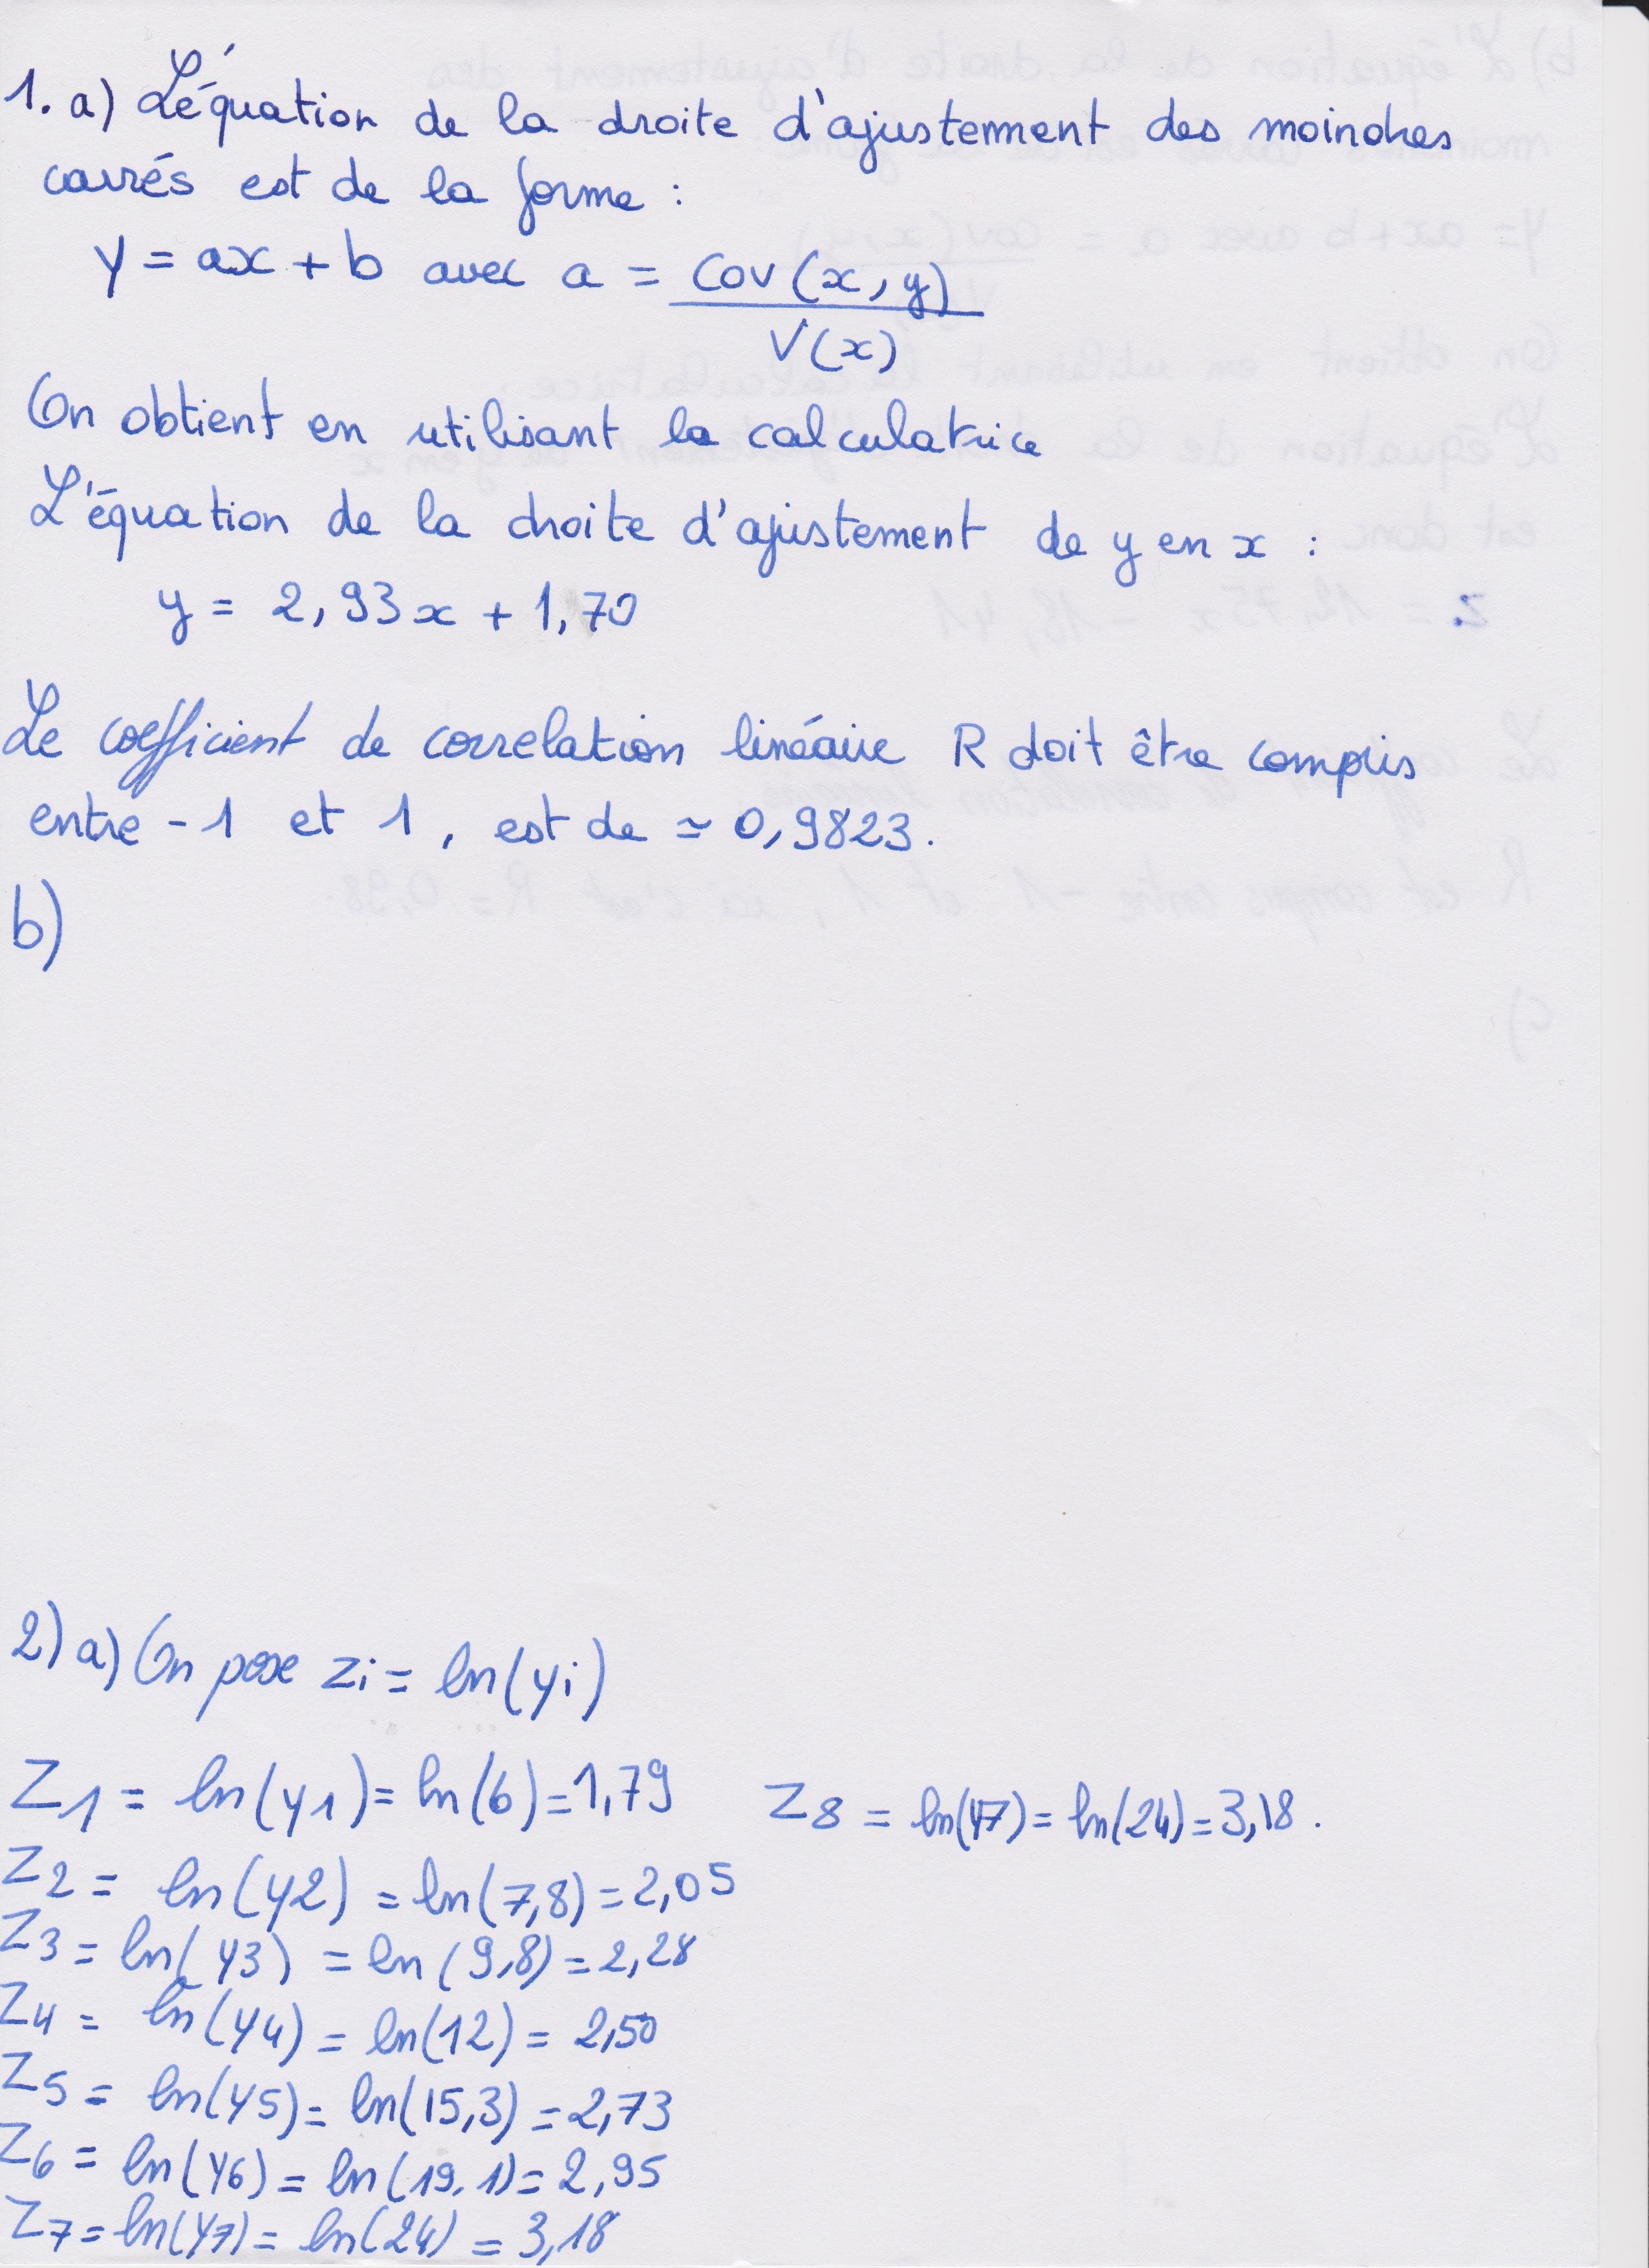 1. a) L'équation de la droite d'ajustement des moindres
carrés est de la forme :
y = ax + b avec a = Cov(x,y)
V(x)
On obtient en utilisant la calculatrice
L'équation de la droite d'ajustement de y en x :
y = 2,93x + 1,70
Le coefficient de correlation linéaire R doit être compris
entre -1 et 1, est de ≃ 0,9823.
b)
2) a) On pose zi = ln(yi)
Z1 = ln(y1) = ln(6) = 1,79
Z8 = ln(y7) = ln(24) = 3,18.
Z2 = ln(y2) = ln(7,8) = 2,05
Z3 = ln(y3) = ln(9,8) = 2,28
Z4 = ln(y4) = ln(12) = 2,50
Z5 = ln(y5) = ln(15,3) = 2,73
Z6 = ln(y6) = ln(19,1) = 2,95
Z7 = ln(y7) = ln(24) = 3,18